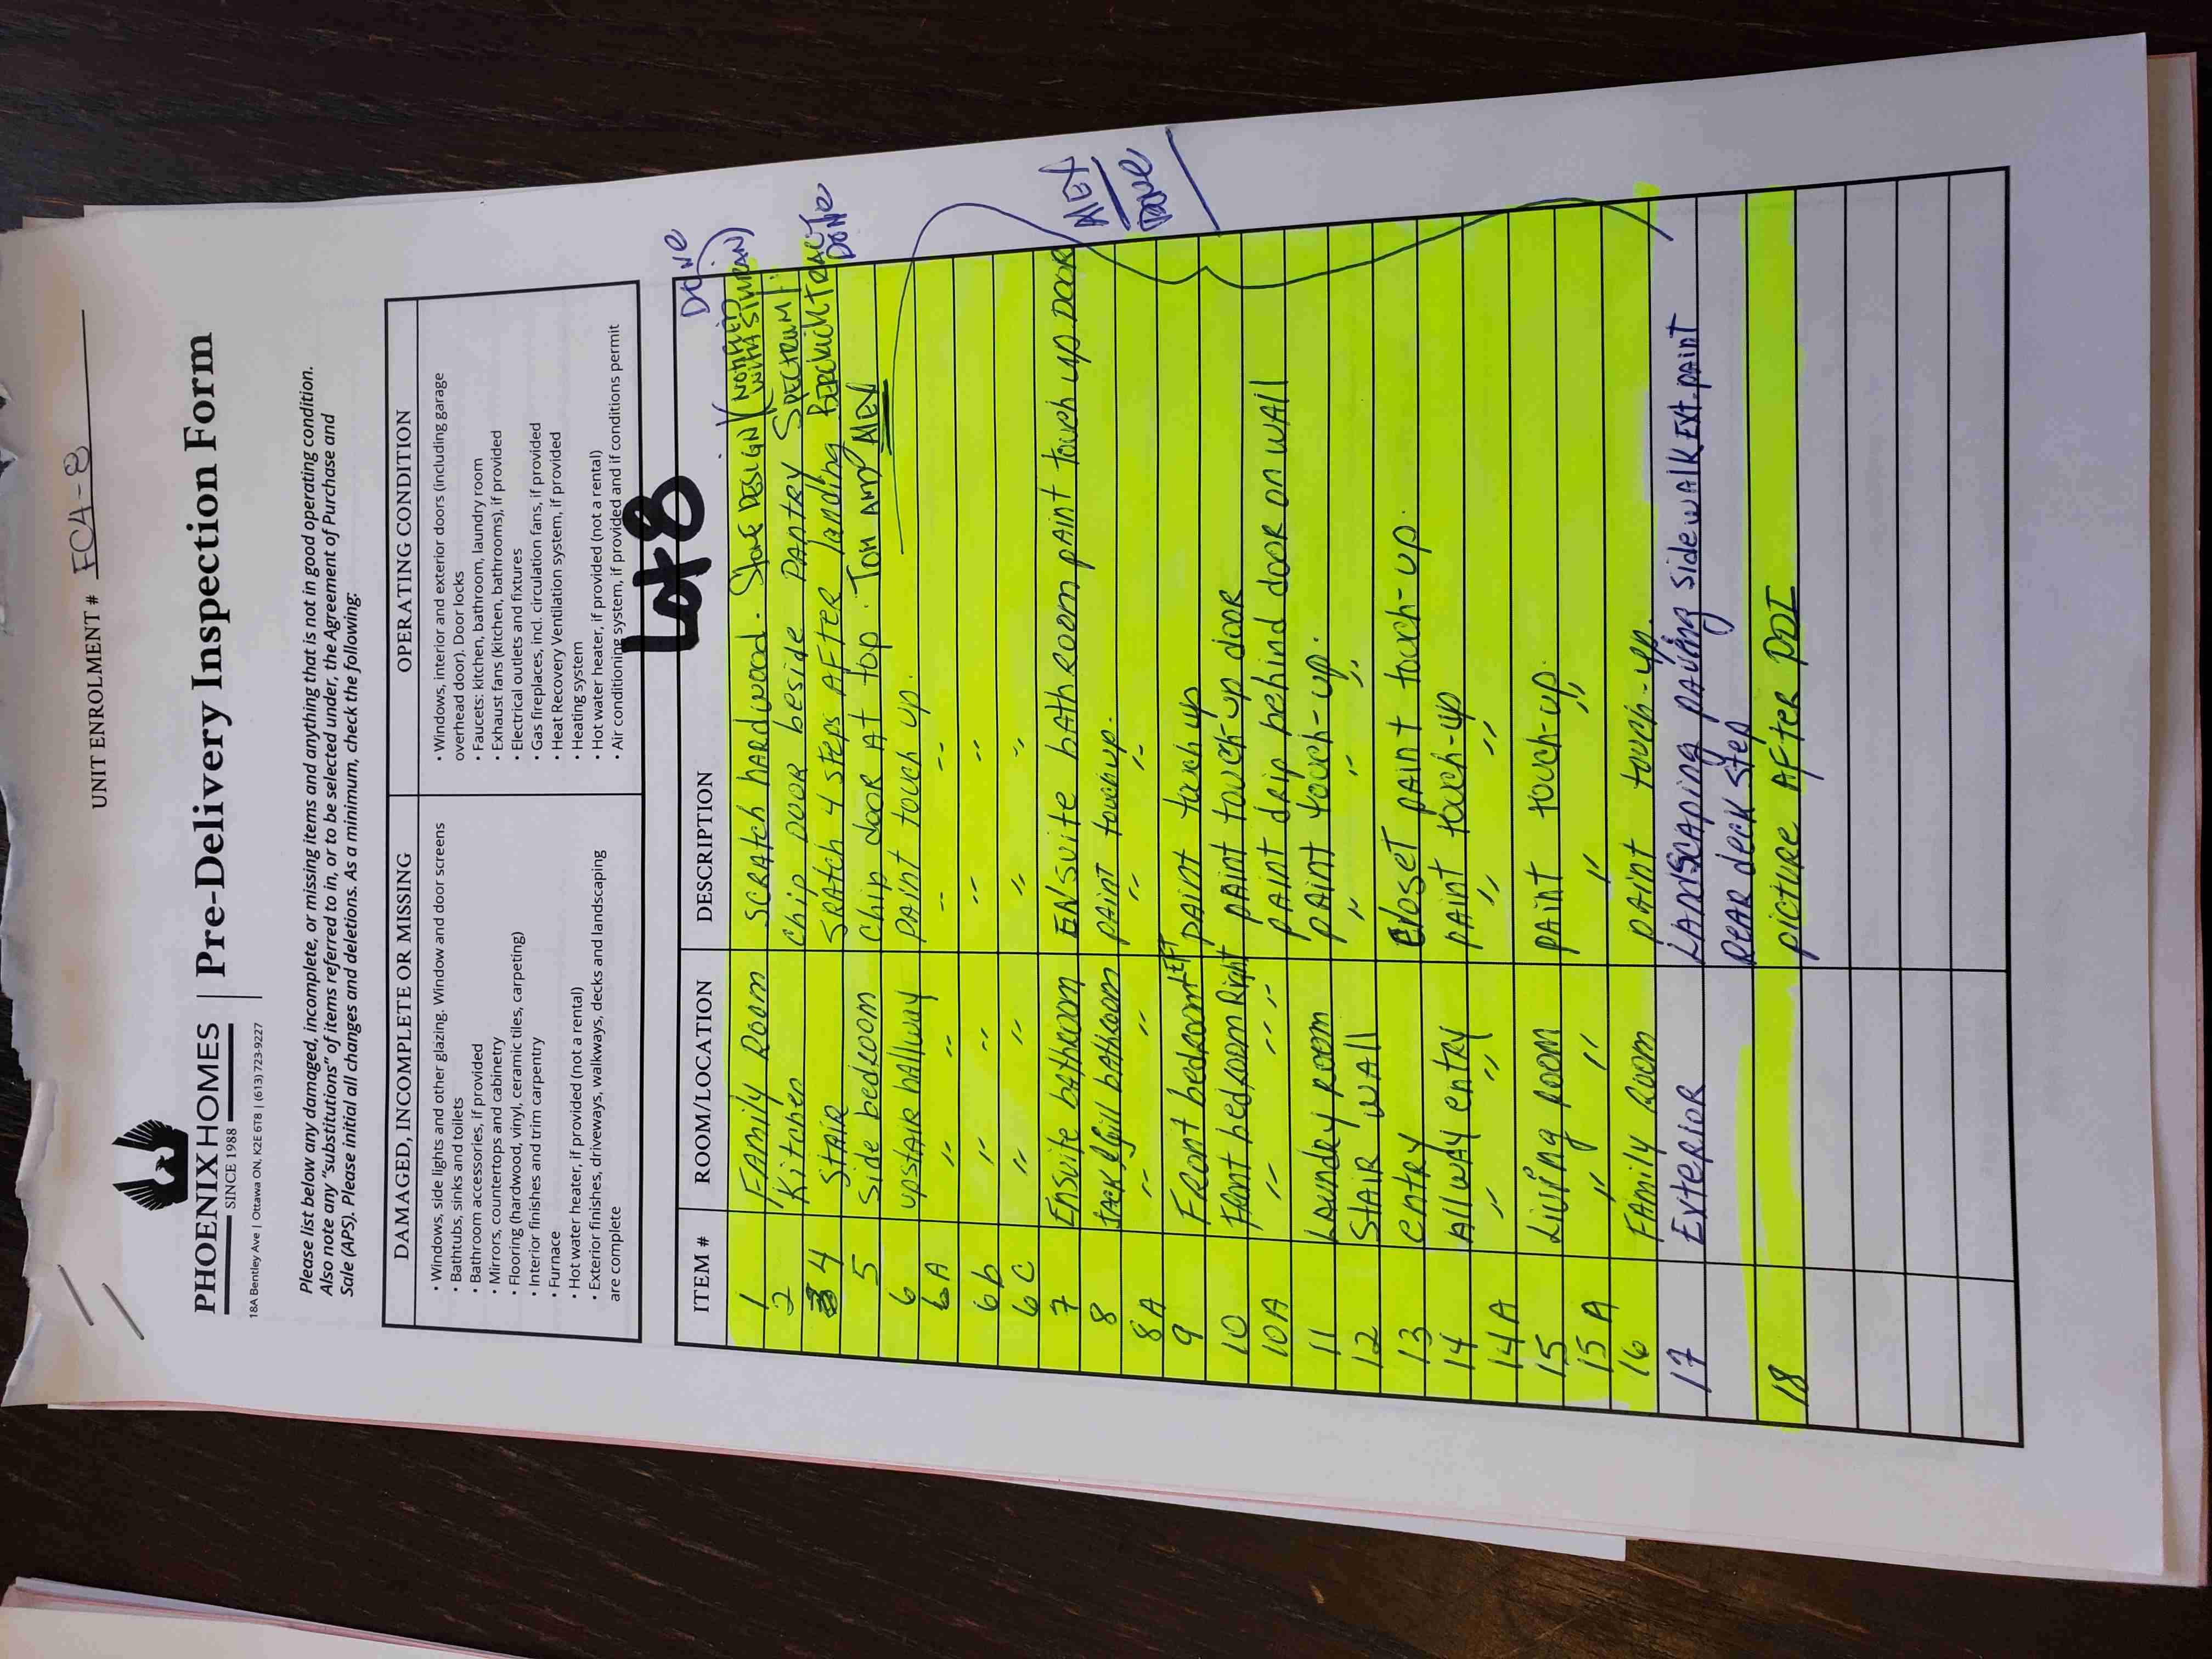 UNIT ENROLMENT # FC4-8
PHOENIX HOMES
SINCE 1988
Pre-Delivery Inspection Form
18A Bentley Ave | Ottawa ON, K2E 6T8 | (613) 723-9227
Please list below any damaged, incomplete, or missing items and anything that is not in good operating condition.
Also note any "substitutions" of items referred to in, or to be selected under, the Agreement of Purchase and
Sale (APS). Please initial all changes and deletions. As a minimum, check the following:
DAMAGED, INCOMPLETE OR MISSING
• Windows, side lights and other glazing. Window and door screens
• Bathtubs, sinks and toilets
• Bathroom accessories, if provided
• Mirrors, countertops and cabinetry
• Flooring (hardwood, vinyl, ceramic tiles, carpeting)
• Interior finishes and trim carpentry
• Furnace
• Hot water heater, if provided (not a rental)
• Exterior finishes, driveways, walkways, decks and landscaping
are complete
OPERATING CONDITION
• Windows, interior and exterior doors (including garage
overhead door). Door locks
• Faucets: kitchen, bathroom, laundry room
• Exhaust fans (kitchen, bathrooms), if provided
• Electrical outlets and fixtures
• Gas fireplaces, incl. circulation fans, if provided
• Heat Recovery Ventilation system, if provided
• Heating system
• Hot water heater, if provided (not a rental)
• Air conditioning system, if provided and if conditions permit
Lot 8
DONE
ITEM # ROOM/LOCATION DESCRIPTION
1 FAmily Room SCRAtch hARdwood. Stone DESIGN (WITH SIMRAN)
2 Kitchen Chip DOOR beside PANTRY SPECTRUM
4 STAIR SRAtch 4 STEPS AFTER landing
DONE
5 Side bedroom Chip dooR At top. TOM AND ALEX
6 upstAiR hAllwAy PAINT touch up.
6A " " " "
6b " " " "
6C " " " "
7 Ensuite bathroom ENSuite bAthRoom pAint touch up DOOR
ALEX
DONE
8 JACK & Gill bAthRoom PAINT touch up.
8A " " "
9 FRont bedroom LEFT PAINT touch up
10 FRont bedroom Right PAINT touch-up dooR
10A " " " PAINT dRip behind dooR on wAll
11 LAundRy Room PAINT touch-up.
12 STAIR WAll " " "
13 entRy Closet PAINT touch-up.
14 AllwAy entRy PAINT touch-up
14A " " " "
15 Living Room PAINT touch-up.
15A " " " "
16 FAmily Room PAINT touch-up.
17 ExteRioR LANDSCAping pAving sidewAlk, Ext. PAINT
REAR deck step
18 picture AFter PDI